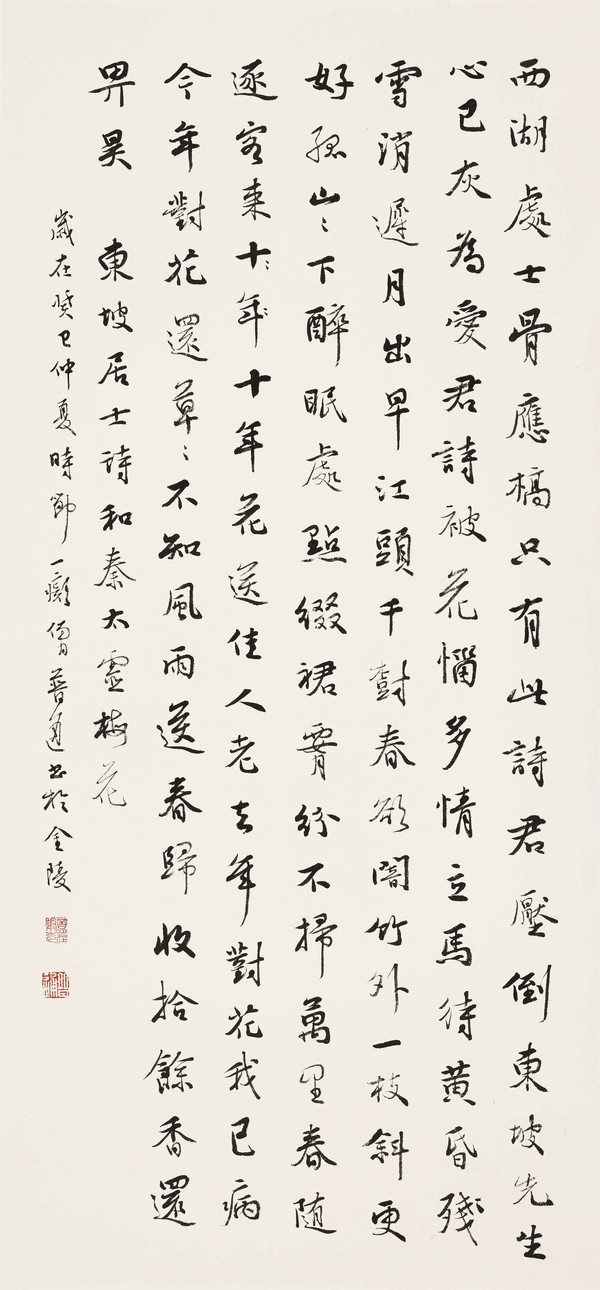 西湖處士骨應槁只有此詩君壓倒東坡先生
心已灰為愛君詩被花惱多情立馬待黃昏殘
雪消遲月出早江頭千樹春欲闇竹外一枝斜更
好孤山〻下醉眠處點綴裙腰紛不掃萬里春随
逐客來十〻年〻十年花送佳人老去年對花我已病
今年對花還草〻不知風雨送春歸收拾餘香還
畀昊 東坡居士詩和秦太虛梅花
歲在癸巳仲夏時節一癡僧普通書於金陵